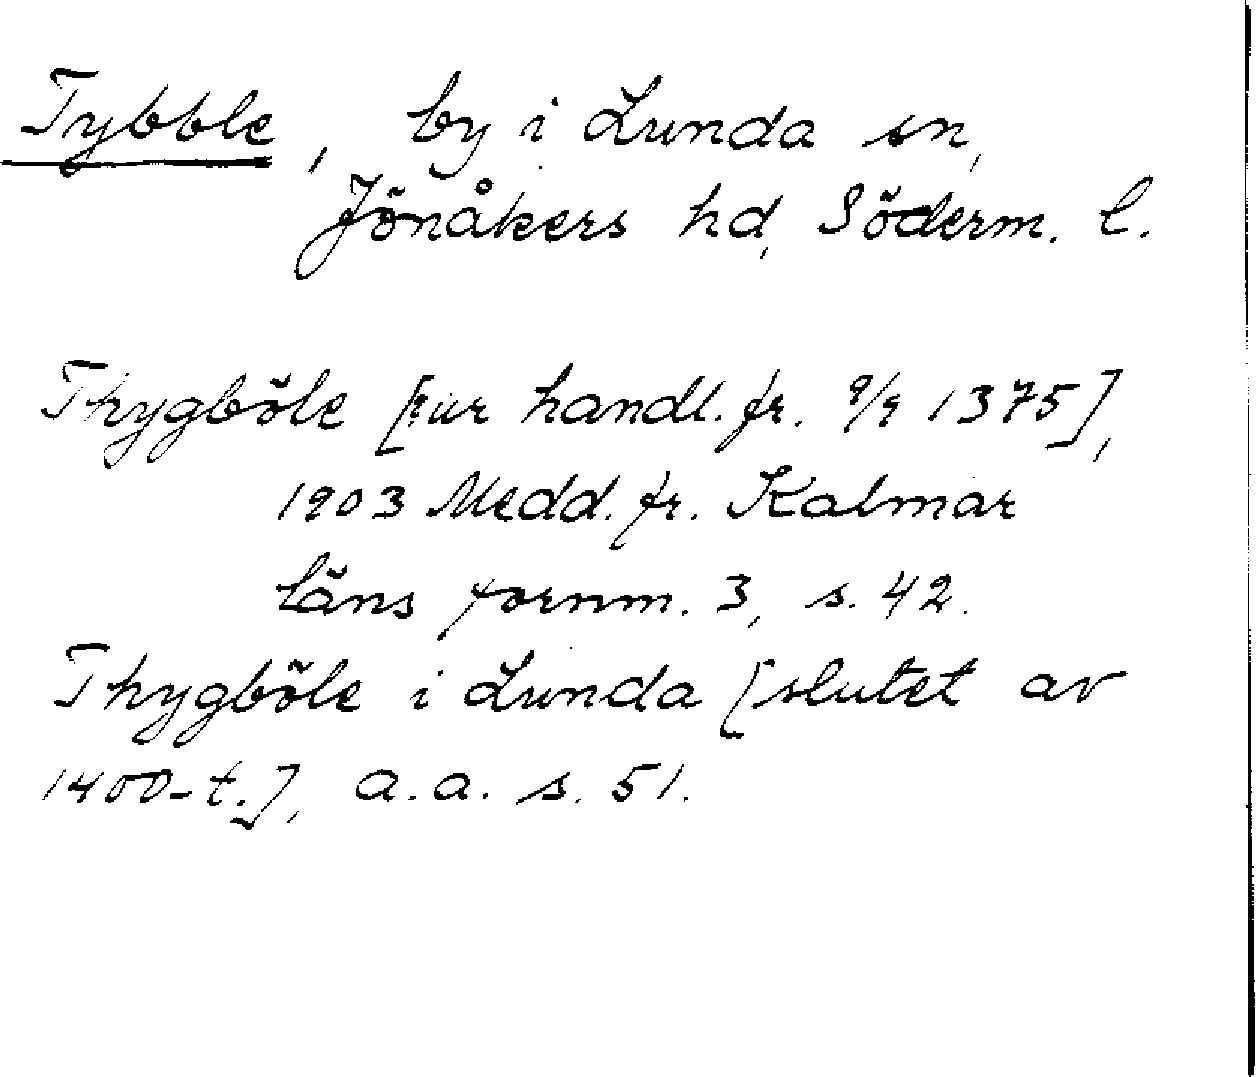 Tybble, by i Lunda sn,
Jönåkers hd, Söderm. l.
Thygböle [ur handl. fr. 9/9 1375],
1903 Medd. fr. Kalmar
läns fornm. 3, s. 42.
Thygböle i Lunda [slutet av
1400-t.], a.a. s. 51.